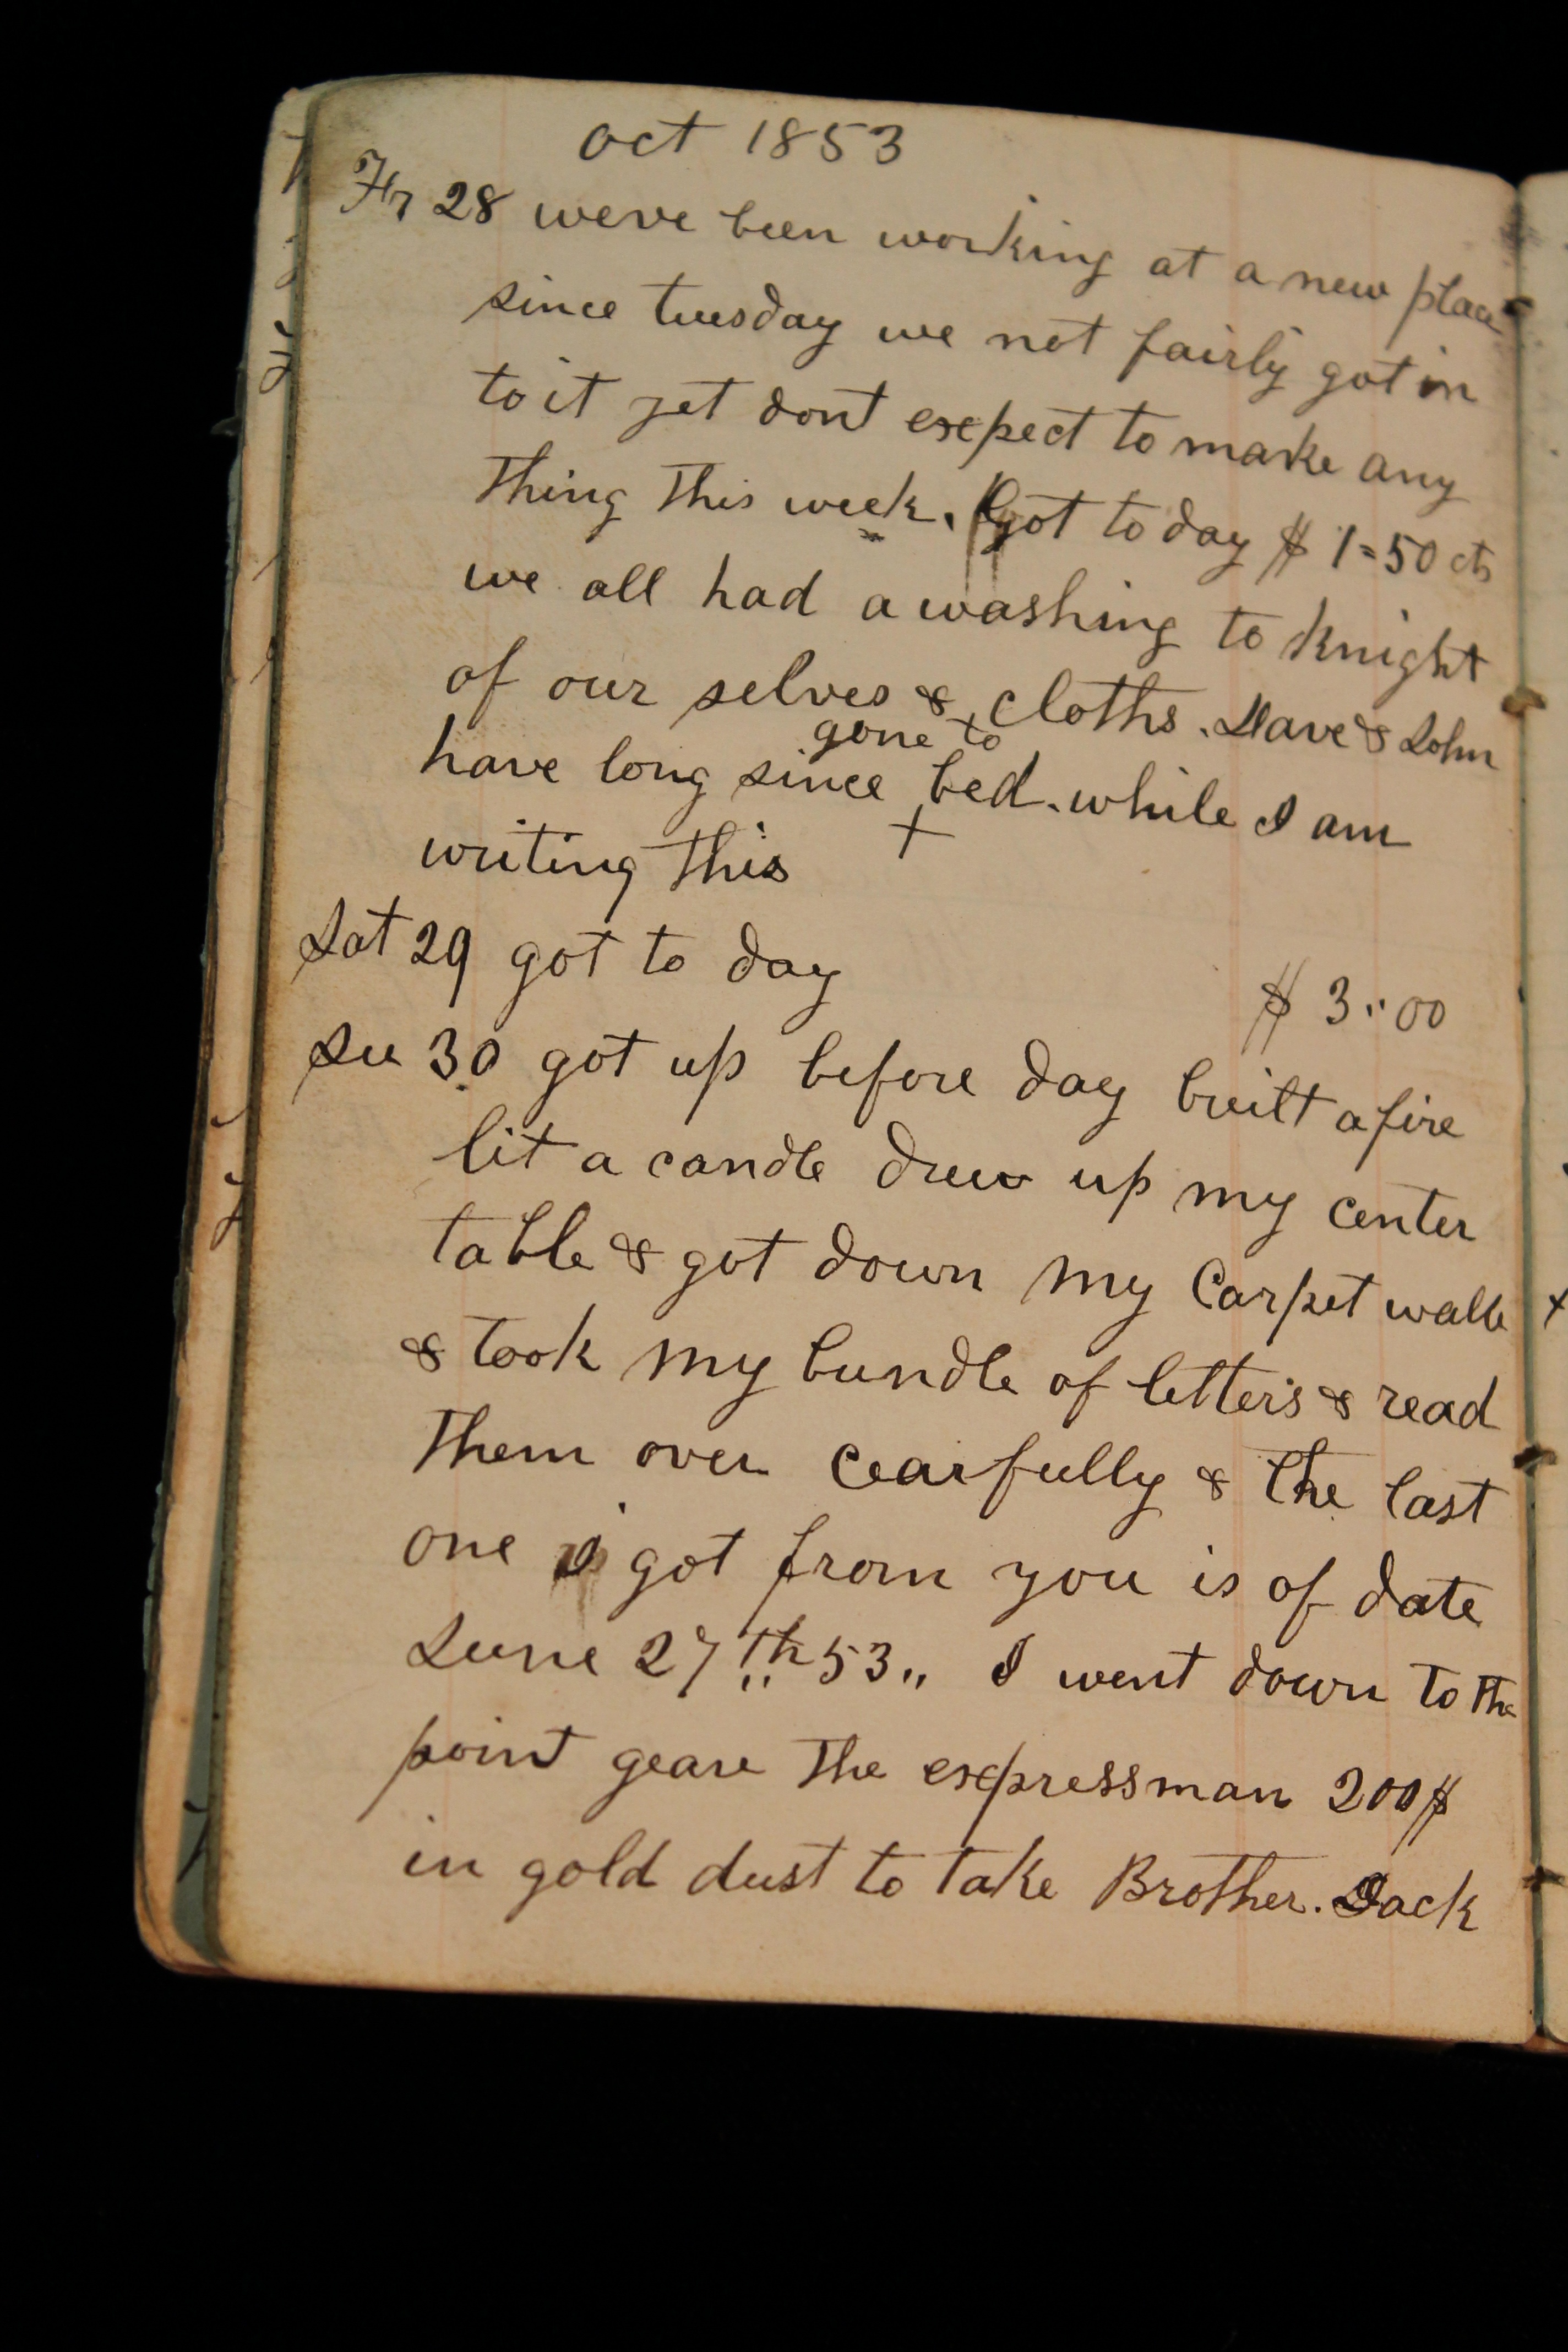 oct 1853
Fr 28 weve been working at a new place
since tuesday we not fairly got in
to it yet dont expect to make any
thing this week. Got to day $ 1=50 cts
we all had a washing to knight
of our selves & cloths. Dave & John
gone to
have long since bed. while I am
+
writing this
Sat 29 got to day $ 3"00
Su 30 got up before day built a fire
lit a candle drew up my center
table & got down my Carpet walle
& took my bundle of letters & read
them over cearfully & the last
one I got from you is of date
June 27th 53" I went down to the
point geave the expressman 200$
in gold dust to take Brother. Jack